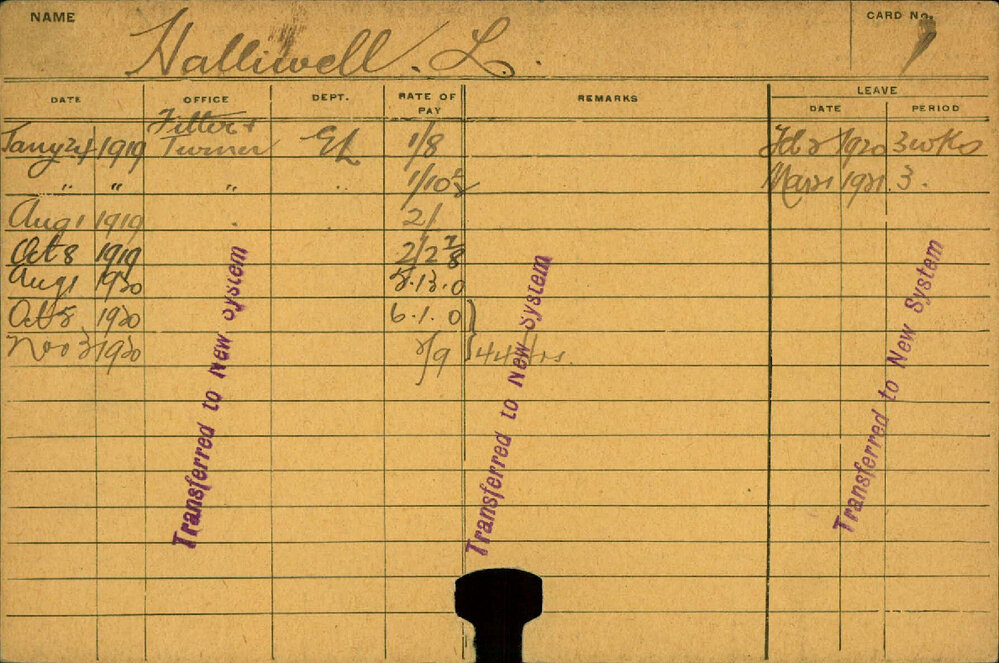 NAME
Halliwell. L.
CARD No.
1
DATE OFFICE DEPT. RATE OF PAY REMARKS LEAVE
DATE PERIOD
Jany 24 1919 Fitter + Turner EL 1/8 Feb 2 1920 3 wks
" " " " 1/10 Mar 21 1921 3.
Aug 1 1919 " 2/
Oct 8 1919 2/2 7/8
Aug 1 1920 5.13.0
Oct 5 1920 6.1.0
Nov 3 1920 2/9 44 Hrs.
Transferred to New System
Transferred to New System
Transferred to New System